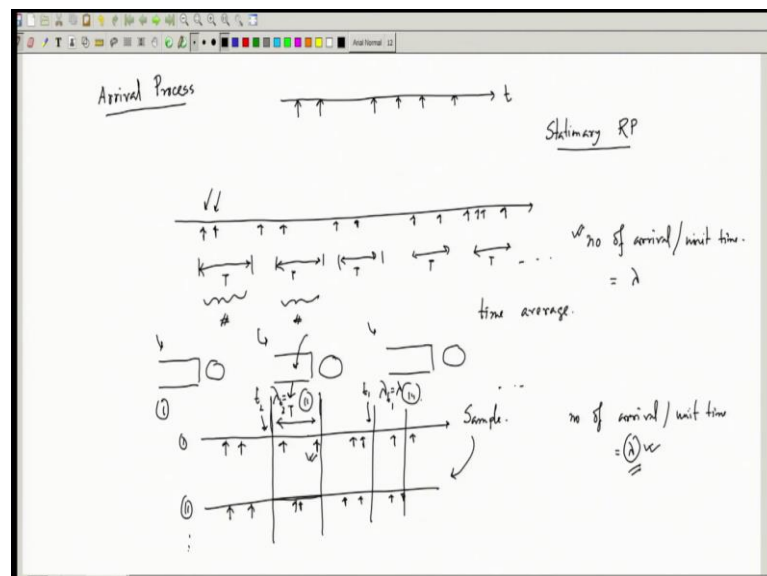 Arial Normal 12
Arrival Process
t
Stationary RP
T T T T T ....
no of arrival / unit time.
= λ
# #
time average.
①
....
t₂ λ₂ = ⑪ t₁ λ₁ = λ ⑭
T
① Sample.
no of arrival / unit time
= λ
⑪